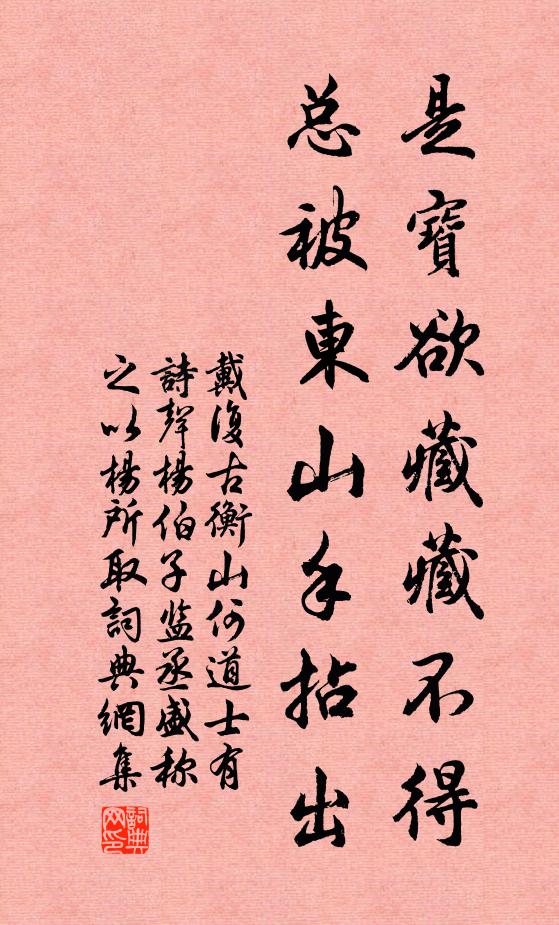 是寶欲藏藏不得
总被東山手拈出
戴復古衡山何道士有
詩聲楊伯子监丞盛称
之以楊所取詞典網集
詞典
网印